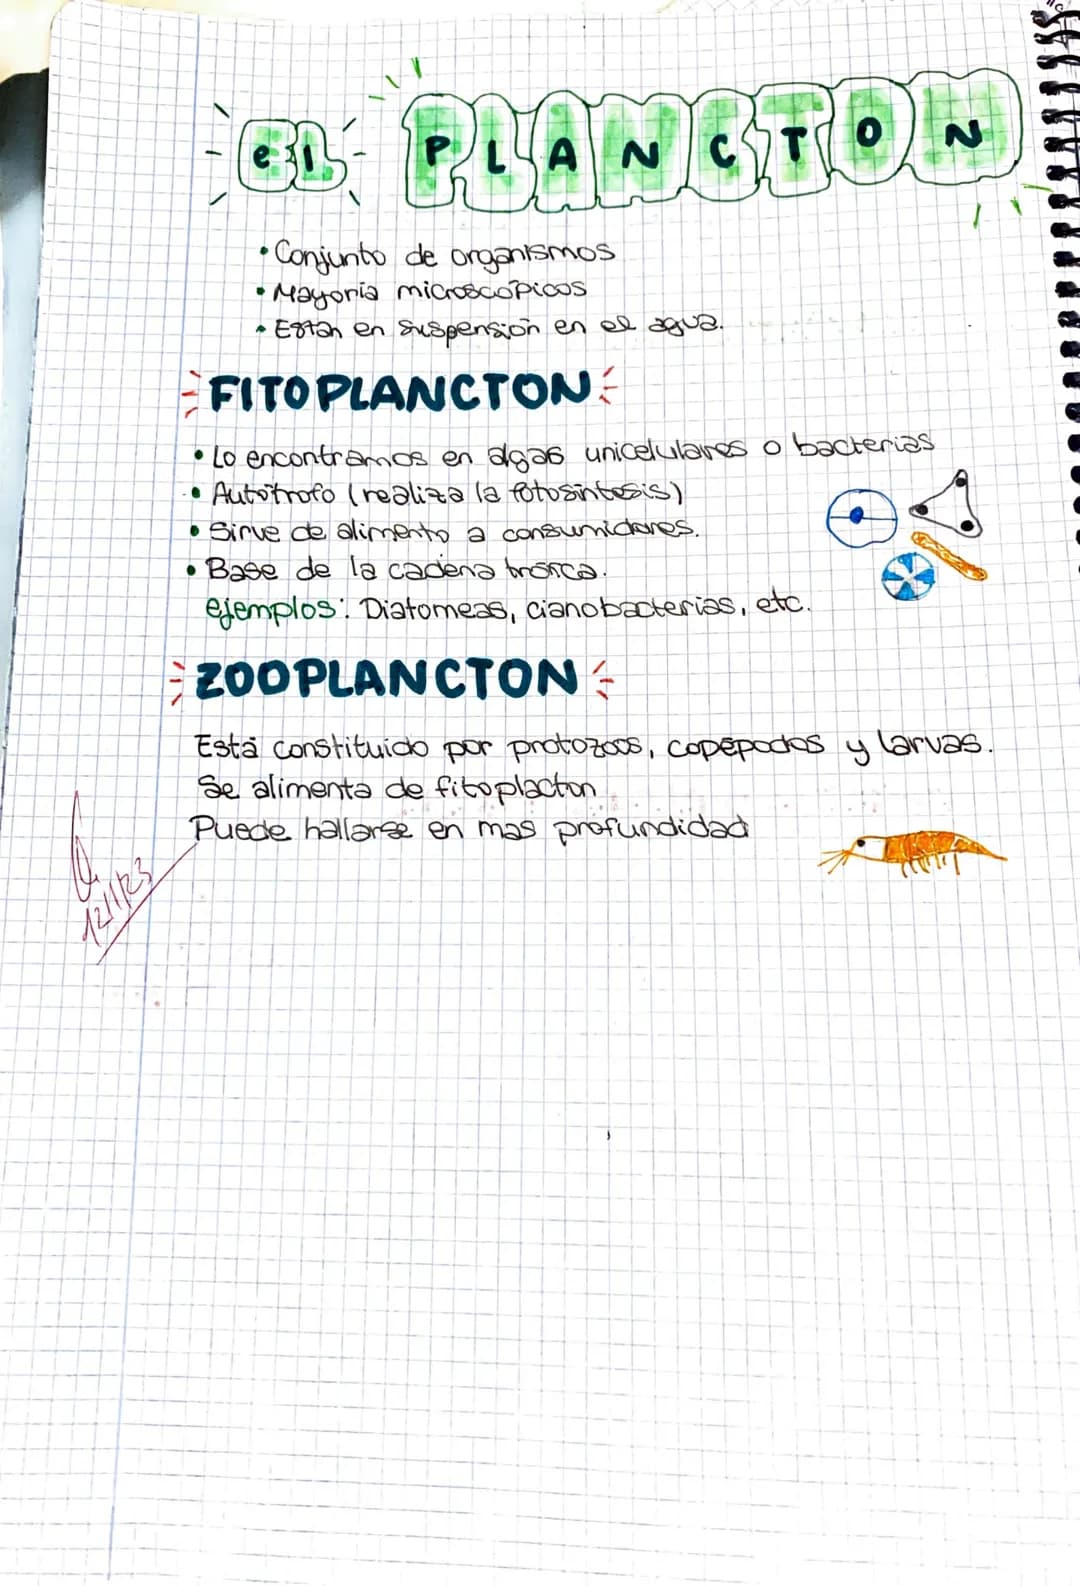 el PLANCTON
• Conjunto de organismos
• Mayoría microscópicos
• Están en suspensión en el agua.
FITOPLANCTON
• Lo encontramos en algas unicelulares o bacterias
• Autótrofo (realiza la fotosíntesis)
• Sirve de alimento a consumidores.
• Base de la cadena
ejemplos: Diatomeas, cianobacterias, etc.
ZOOPLANCTON
Está constituido por protozoos, copépodos y larvas.
Se alimenta de fitoplacton
Puede hallarse en mas profundidad
12/1/23